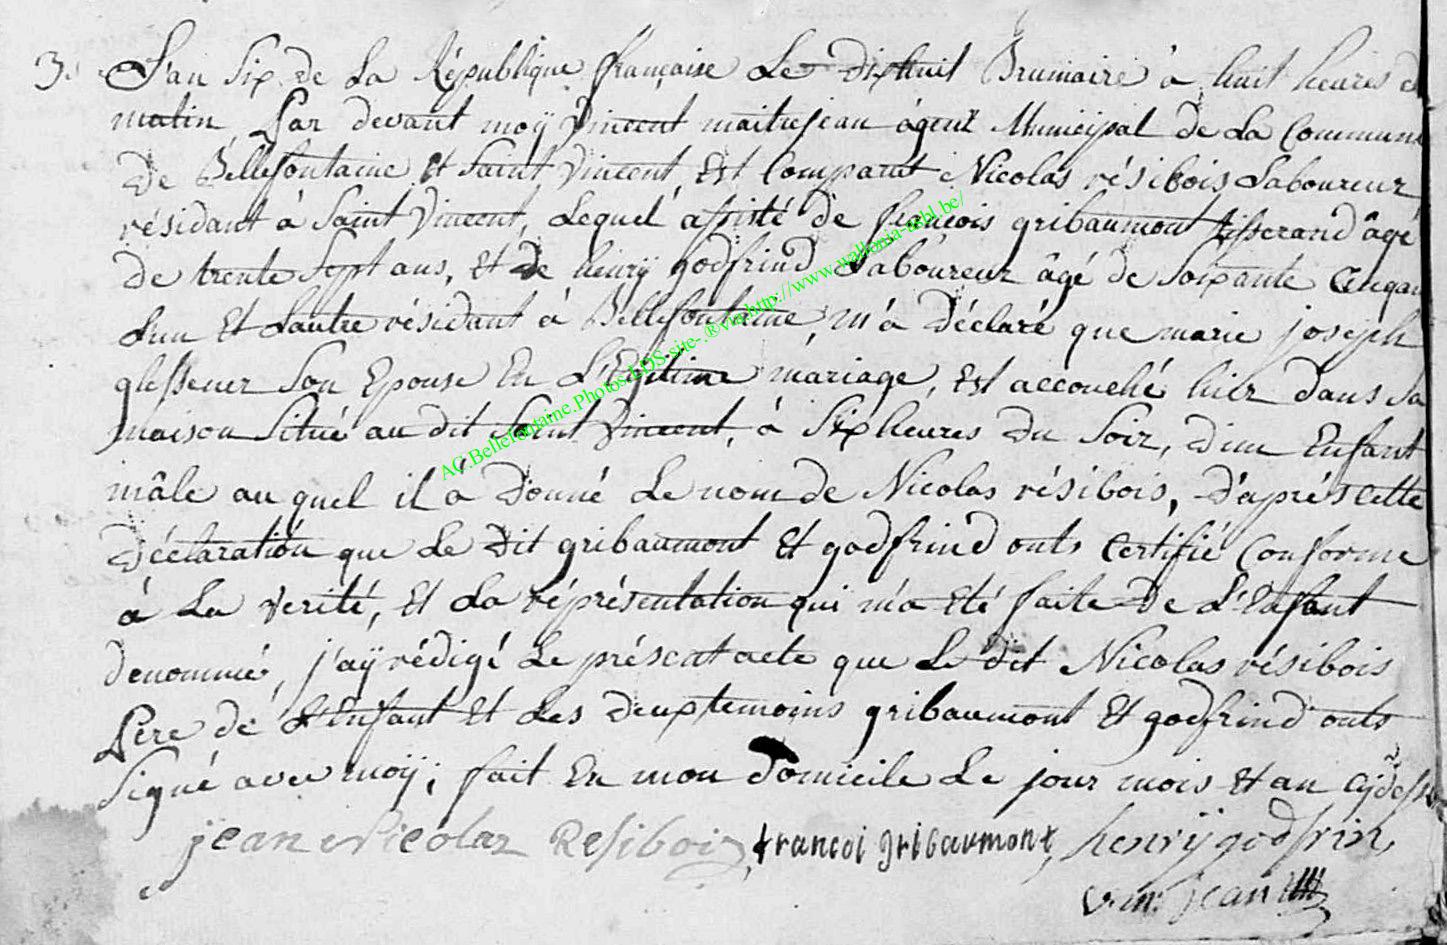 3. L'an Six de La République française Le dixhuit Brumaire à huit heures d
matin, Par devant moÿ Vincent maitrejean agent Municipal de La Commune
De Bellefontaine Et Saint Vincent, Est Comparut Nicolas résibois Laboureur
résidant à Saint Vincent, Lequel assisté de francois gribaumont tisserand âgé
de trente Sept ans, Et de henrÿ godfrind Laboureur âgé de Soixante
L'un Et Lautre résidant à Bellefontaine, m'a Déclaré que marie joseph
glessener Son Epouse En Légitime mariage, Est accouché hier dans Sa
maison Situé au dit Saint Vincent, à Six heures du Soir, d'un Enfant
mâle au quel il à Donné Le nom de Nicolas résibois, D'aprés Cette
Déclaration que Le Dit gribaumont Et godfrind onts Certifié Conforme
à La verité, Et La réprésentation qui m'a Eté faite De L'Enfant
denommé, j'aÿ rédigé Le présent acte que Le dit Nicolas résibois
Pere de L'Enfant Et Les deux temoins gribaumont Et godfrind onts
Signé avec moÿ; fait En mon Domicile Le jour mois Et an Cÿ dess
jean Nicolas Resibois, francoi gribaumont, henrÿ godfrin,
v. m: jean
AC.Bellefontaine.Photos.LDS-site-.®via.http://www.wallonia-ashl.be/